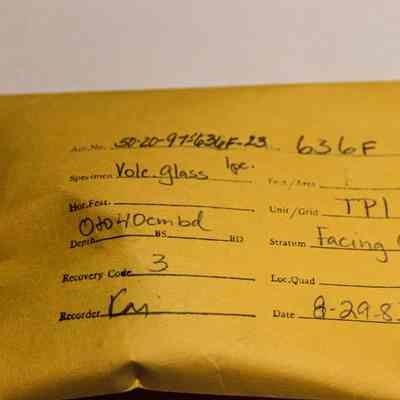 Acc.No. 50-20-97-636F-23 636F
Specimen Volc. glass 1pc. Feat/Area 1
Hor.Feat. Unit/Grid TP1
0to40cmbd
Depth BS BD Stratum Facing
Recovery Code 3 Loc.Quad
Recorder Date 8-29-8